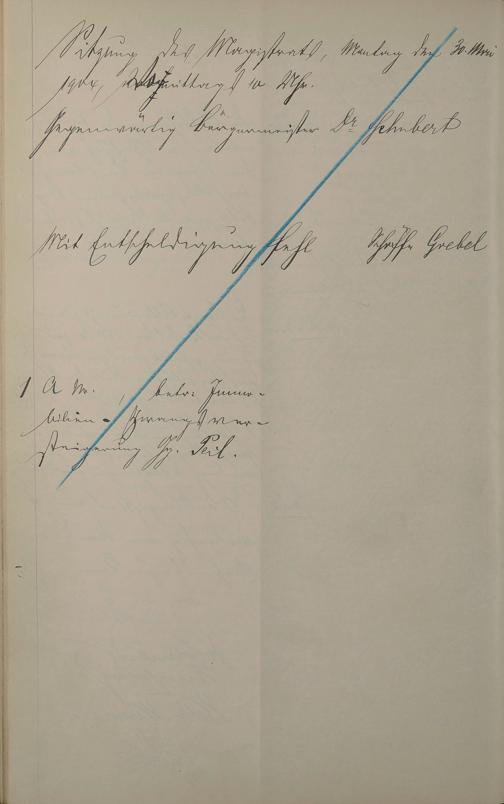 Sitzung des Magistrats, Montag den 30. Mai
1904, Vormittags 10 Uhr.
Gegenwärtig Bürgermeister Dr Schubert
Mit Entschuldigung fehl Schöffe Grebel
1 A M. , betr: Immo-
bilien - Zwangsver-
steigerung Peil.